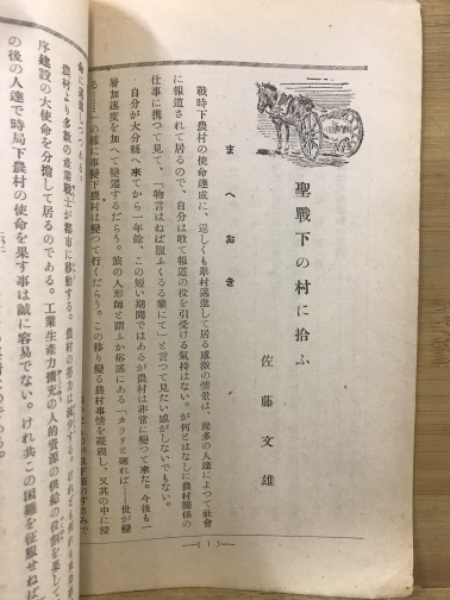 聖戰下の村に拾ふ
佐藤文雄
まへおき
戰時下農村の使命達成に、逞しくも擧村邁進して居る感激の情景は、幾多の人達によつて社會
に報道されて居るので、自分は敢て報道の役を引受ける氣持はない。が何とはなしに農村關係の
仕事に携つて見て、「物言はねば腹ふくるる業にて」と言つて見たい感がしないでもない。
自分が大分縣へ來てから一年餘、この短い期間ではあるが農村は非常に變つて來た。今後も一
層加速度を加へて變遷するだらう。旅の人形師と謂ふか俗謠にある「カラリと廻れば……世が變
る……」の樣に事變下農村は變つて行くだらう。この移り變る農村事情を凝視し、又其の中に浸
農村より多數の産業戰士が都市に移動する。農村の勞力は減少する。
序建設の大使命を分擔して居るのである。工業生産力擴充の人的資源の供給の役割を果して
の後の人達で時局下農村の使命を果す事は誠に容易でない。けれ共この困難を征服せねば
(1)